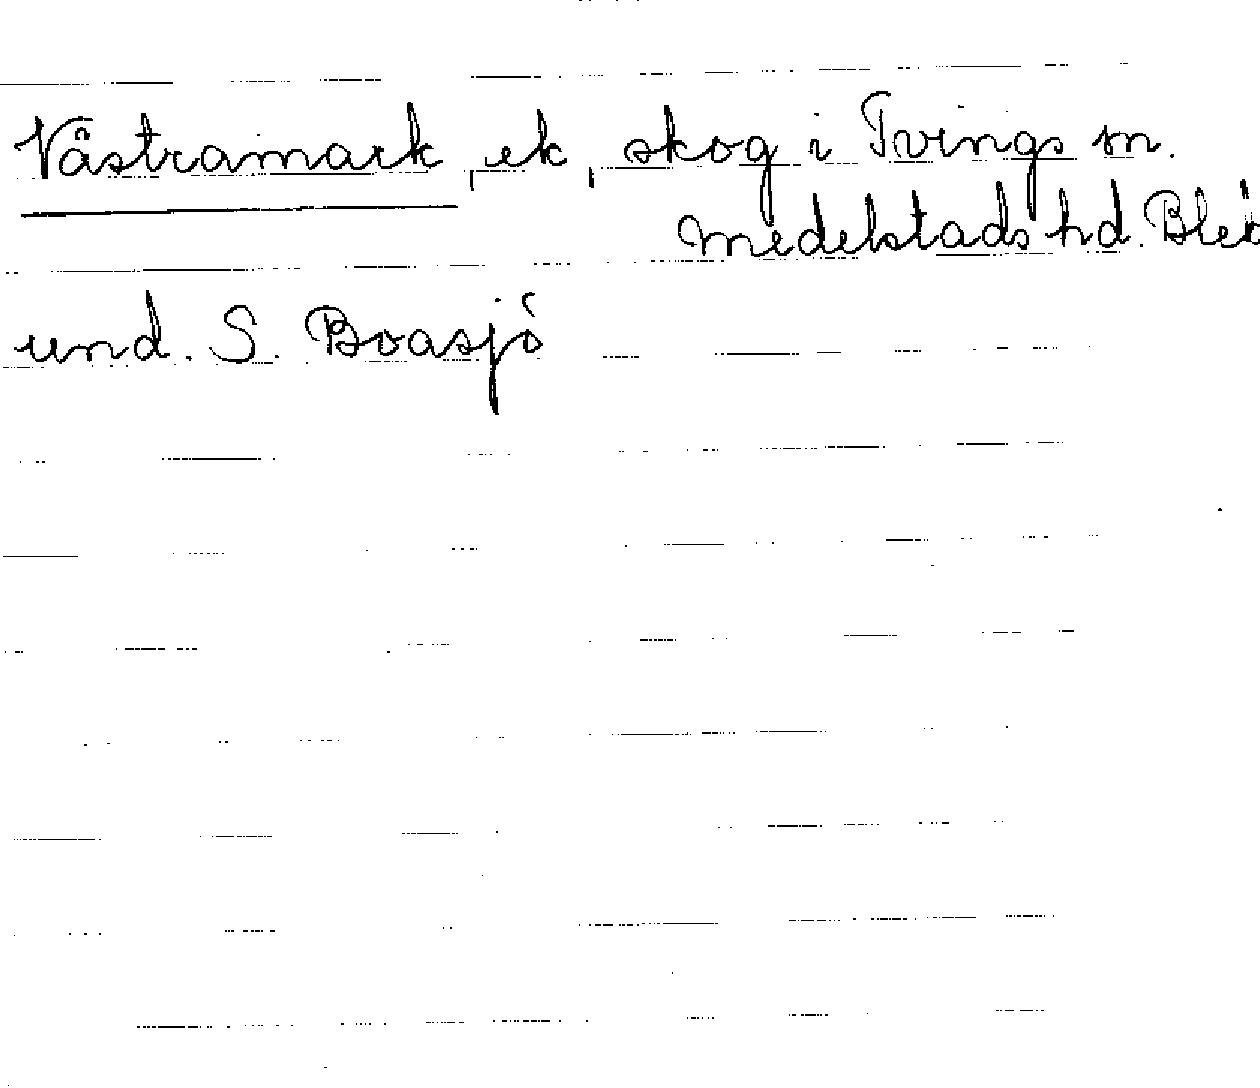 Västramark, ek, skog i Tvings sn.
Medelstads hd. Blek
und. S. Boasjö